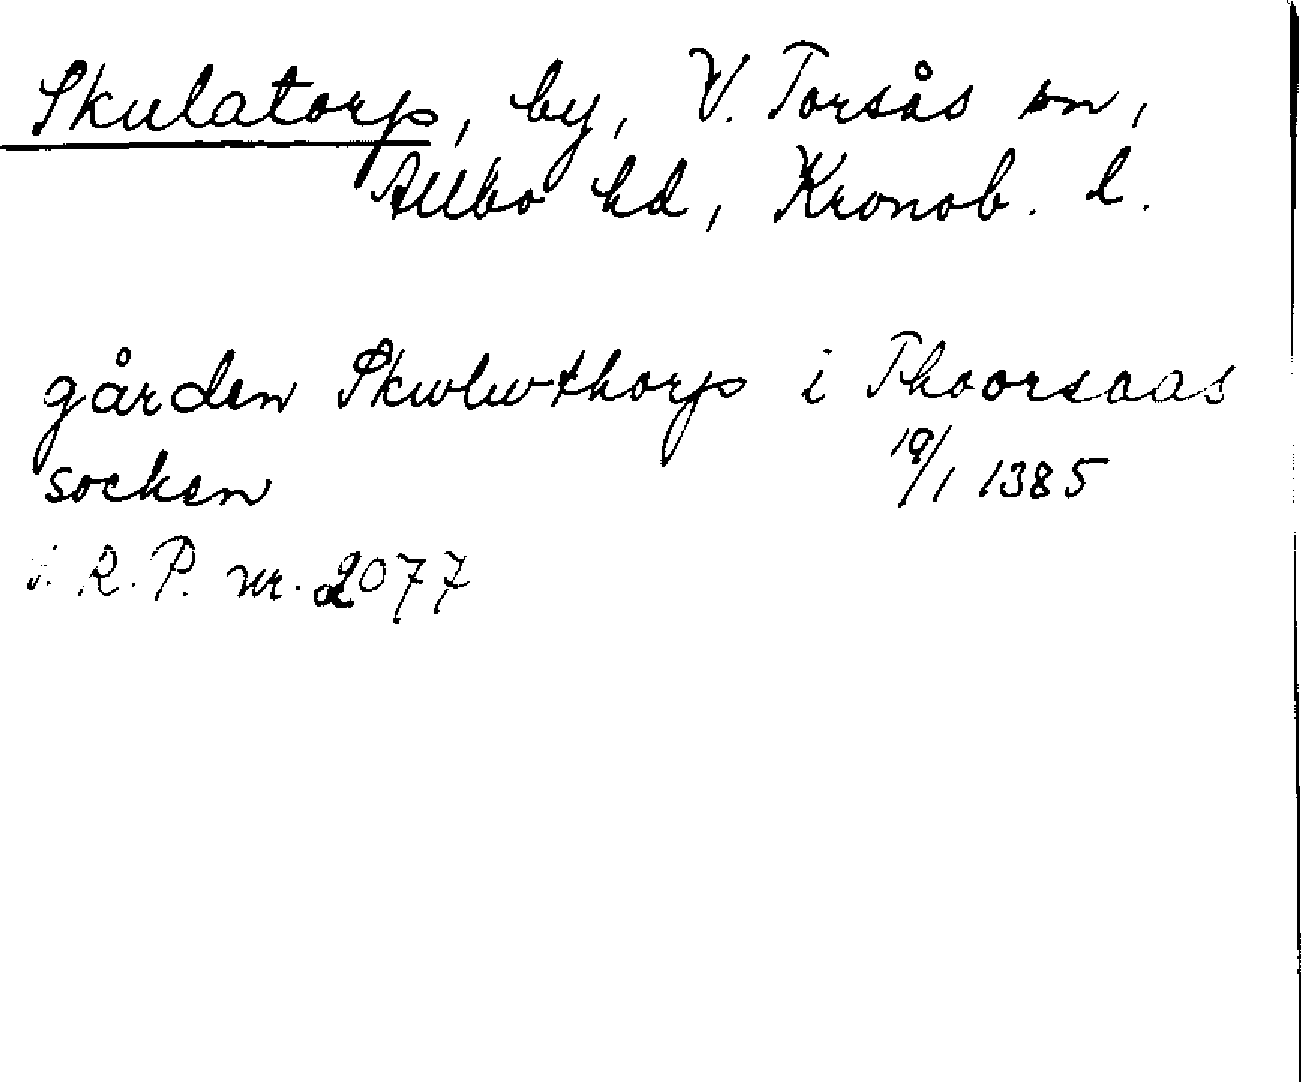 Skulatorp, by, V. Torsås sn,
Allbo hd, Kronob. l.
gården Skwlwthorp i Thoorsaas
socken 19/1 1385
S. R. P. nr. 2077